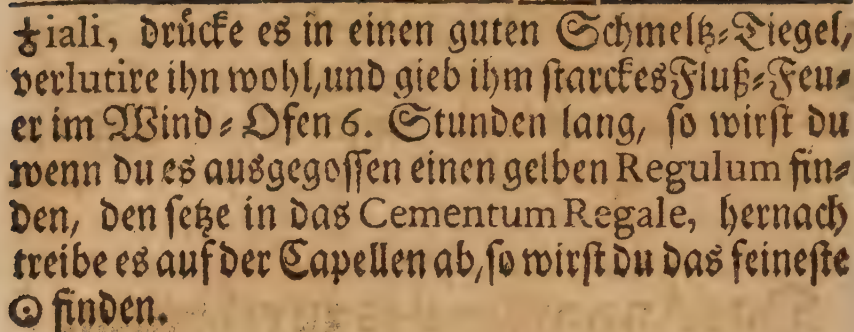 ♁iali, drücke es in einen guten Schmeltz-Tiegel,
verlutire ihn wohl, und gieb ihm starckes Fluß-Feu-
er im Wind-Ofen 6. Stunden lang, so wirst du
wenn du es ausgegossen einen gelben Regulum fin-
den, den setze in das Cementum Regale, hernach
treibe es auf der Capellen ab, so wirst du das feineste
☉ finden.